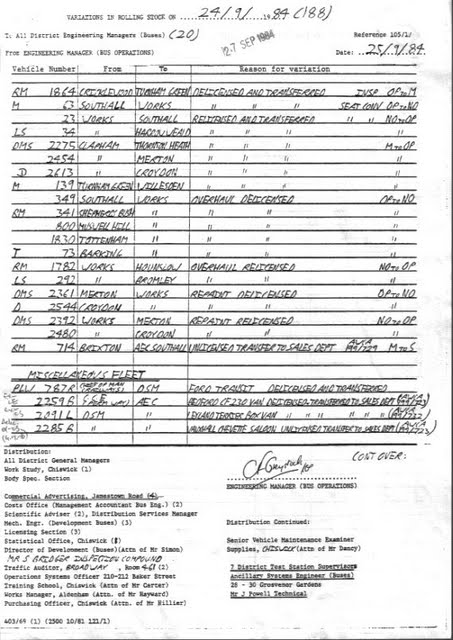 VARIATIONS IN ROLLING STOCK ON 24/9/1984 (188)
To All District Engineering Managers (Buses) (20)
Reference 105/1/
27 SEP 1984
From ENGINEERING MANAGER (BUS OPERATIONS)
Date: 25/9/84.
Vehicle Number From To Reason for variation
RM 1864 CRICKLEWOOD TURNHAM GREEN DELICENSED AND TRANSFERRED INSP OP TO M
M 63 SOUTHALL WORKS " " " SEAT CONV OP TO NO
23 WORKS SOUTHALL RELICENSED AND TRANSFERRED " " NO TO OP
LS 34 " HARROW WEALD " " " "
DMS 2275 CLAPHAM THORNTON HEATH " " " M TO OP
2454 " MERTON " " " "
D 2613 " CROYDON " " " "
M 139 TURNHAM GREEN WILLESDEN " " " "
349 SOUTHALL WORKS OVERHAUL DELICENSED OP TO NO
RM 341 SHEPHERDS BUSH " " " "
800 MUSWELL HILL " " " "
1830 TOTTENHAM " " " "
T 73 BARKING " " " "
RM 1782 WORKS HOUNSLOW OVERHAUL RELICENSED NO TO OP
LS 292 " BROMLEY " " "
DMS 2361 MERTON WORKS REPAINT DELICENSED OP TO NO
D 2544 CROYDON " " " "
DMS 2392 WORKS MERTON REPAINT RELICENSED NO TO OP
2480 " CROYDON " " "
RM 714 BRIXTON AEC SOUTHALL UNLICENSED TRANSFER TO SALES DEPT M TO S
MISCELLANEOUS FLEET
787R DSM FORD TRANSIT DELICENSED AND TRANSFERRED
2259B AEC BEDFORD CF230 VAN DELICENSED TRANSFERRED TO SALES DEPT
2091L DSM " LEYLAND TERRIER BOX VAN " " " "
2285B " VAUXHALL CHEVETTE SALOON UNLICENSED TRANSFER TO SALES DEPT
Distribution:
All District General Managers
Work Study, Chiswick (1)
Body Spec. Section
CONT OVER:
ENGINEERING MANAGER (BUS OPERATIONS)
Commercial Advertising, Jamestown Road (4)
Costs Office (Management Accountant Bus Eng.) (2)
Scientific Adviser (2), Distribution Services Manager
Mech. Engr. (Development Buses) (3)
Licensing Section (3)
Statistical Office, Chiswick
Director of Development (Buses)(Attn of Mr Simon)
MR S BRIDGER INSPECTION COMPOUND
Traffic Auditor, BROADWAY, ROOM 461 (2)
Operations Systems Officer 210-212 Baker Street
Training School, Chiswick (Attn of Mr Carter)
Works Manager, Aldenham (Attn of Mr Hayward)
Purchasing Officer, Chiswick (Attn of Mr Hillier)
Distribution Continued:
Senior Vehicle Maintenance Examiner
Supplies, CHISWICK (Attn of Mr Dancy)
7 District Test Station Supervisors
Ancillary Systems Engineer (Buses)
25 - 30 Grosvenor Gardens
Mr J Powell Technical
403/69 (1) (2500 10/81 121/1)